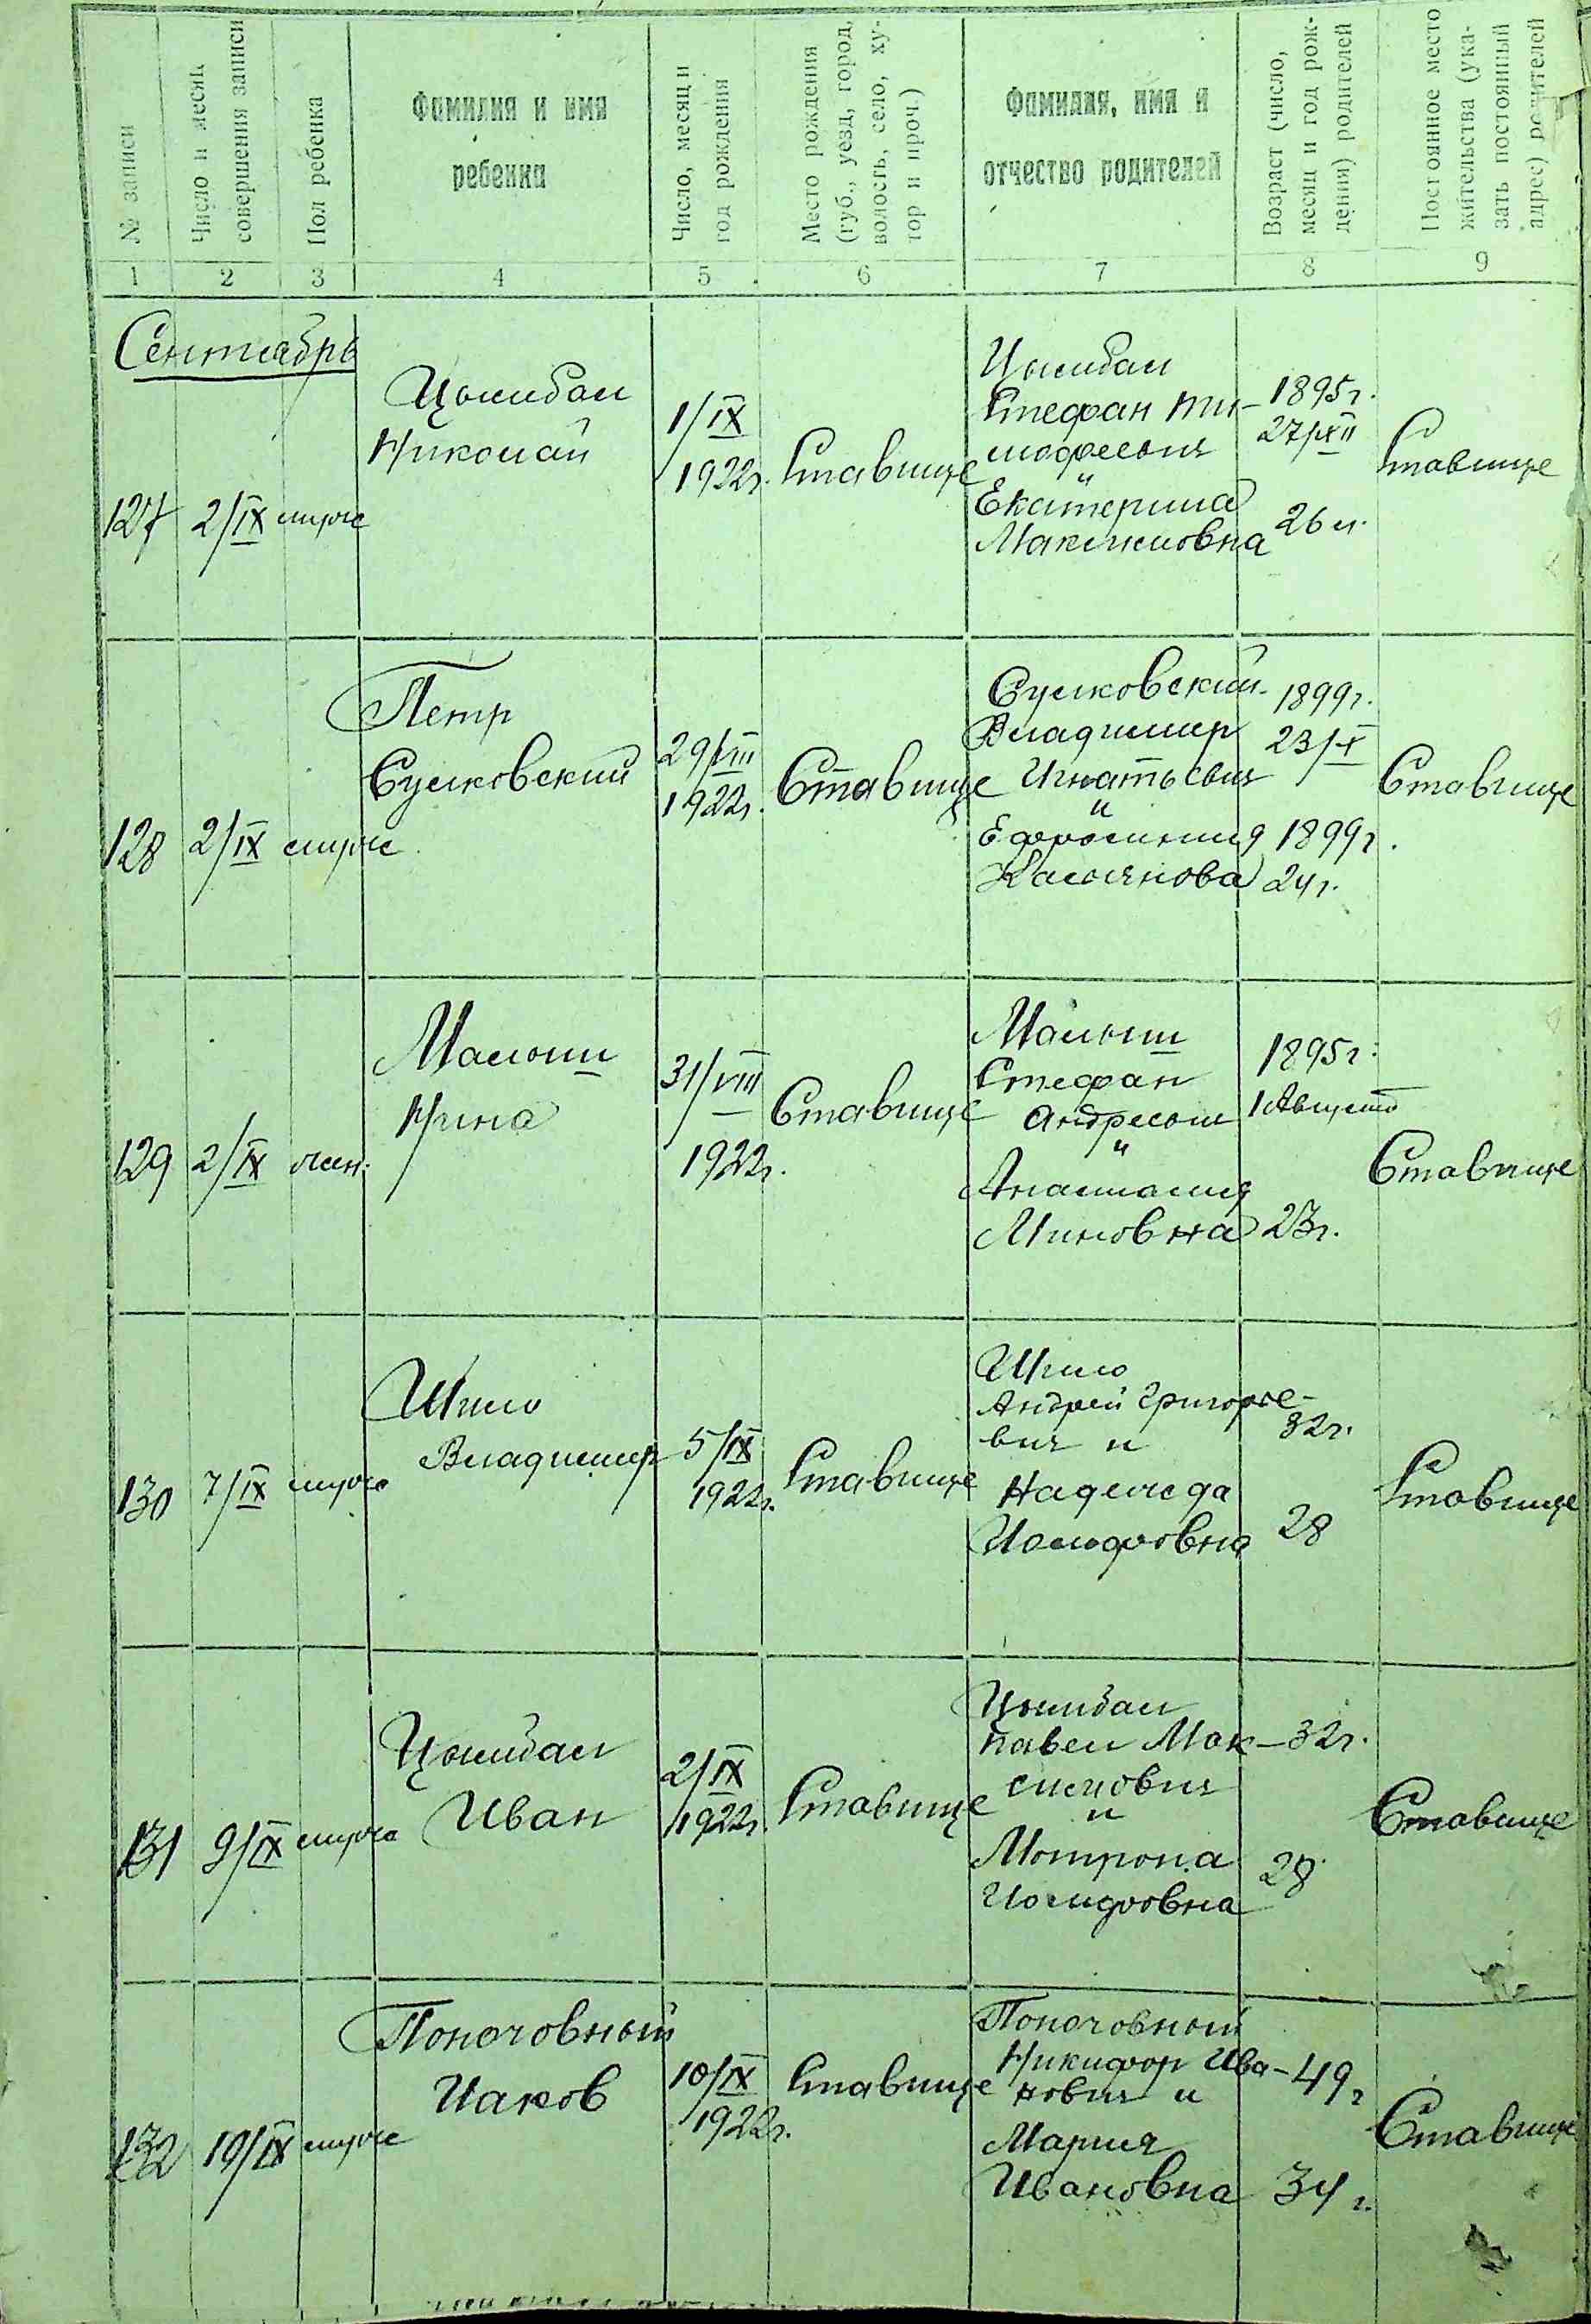 № записи
Число и месяц
совершения записи
Пол ребенка
Фамилия и имя
ребенка
Число, месяц и
год рождения
Место рождения
(губ., уезд, город,
волость, село, ху-
тор и проч.)
Фамилия, имя и
отчество родителей
Возраст (число,
месяц и год рож-
дения) родителей
Постоянное место
жительства (ука-
зать постоянный
адрес) родителей
1 2 3 4 5 6 7 8 9
Сентябрь
127
2/IX
муже
Цымбал
Николай
1/IX
1922г.
Ставище
Цымбал
Стефан Ти-
мофеевич
и
Екатерина
Максимовна
1895г.
27/XII
26 л.
Ставище
128
2/IX
муже
Петр
Сулковский
29/VIII
1922г.
Ставище
Сулковский
Владимир
Игнатьевич
и
Ефросиния
Касьянова
1899г.
23/X
1899г.
24г.
Ставище
129
2/IX
жен.
Малыш
Нина
31/VIII
1922г.
Ставище
Малыш
Стефан
Андреевич
и
Анастасия
Миновна
1895г.
1 Августа
23г.
Ставище
130
7/IX
муже
Шило
Владимир
5/IX
1922г.
Ставище
Шило
Андрей Григорье-
вич и
Надежда
Иосифовна
32г.
28
Ставище
131
9/IX
муже
Цымбал
Иван
2/IX
1922г.
Ставище
Цымбал
Павел Мак-
симович
и
Мотрона
Иосифовна
32г.
28
Ставище
132
19/IX
муже
Поночовный
Иаков
10/IX
1922г.
Ставище
Поночовный
Никифор Ива-
нович и
Мария
Ивановна
49г
34г.
Ставище